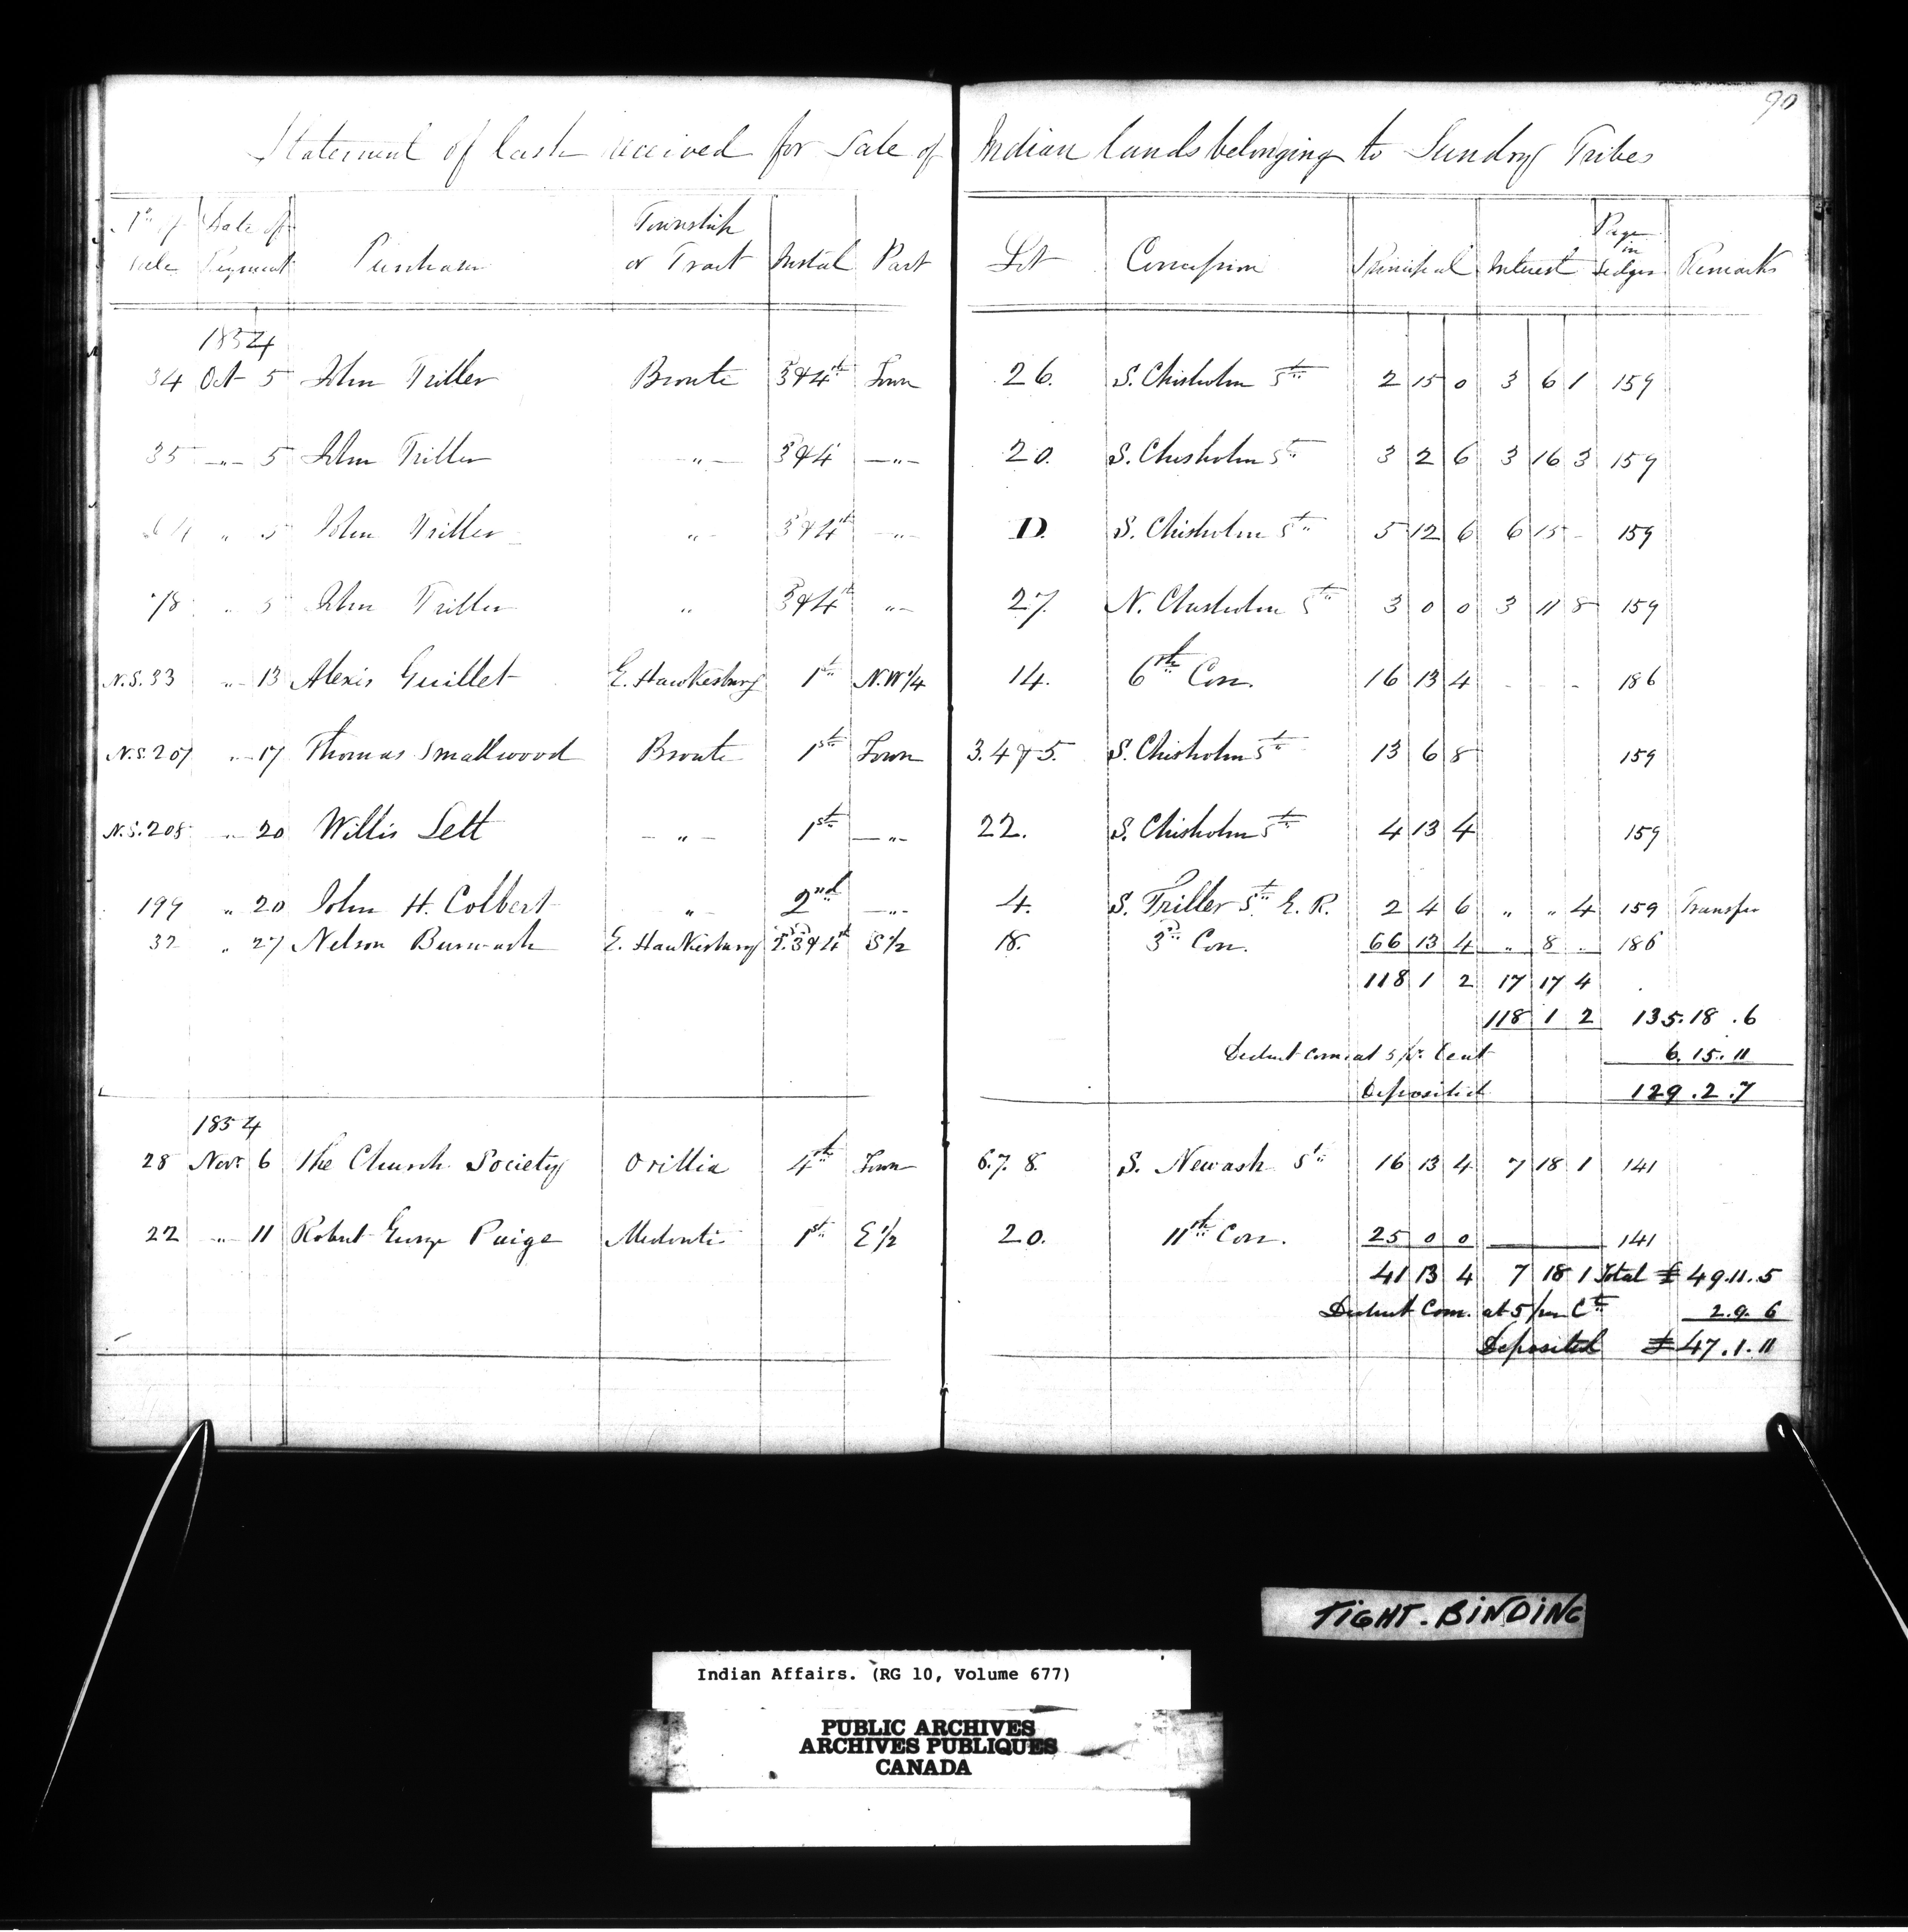 90
Statement of Cash received for Sale of Indian Lands belonging to Sundry Tribes
No of Sale Date of Payment Purchaser Township or Tract Instal Part Lot Concession Principal Interest Page in Ledger Remarks
1854
34 Oct 5 John Triller Bronte 3 & 4th Town 26. S. Chisholm St 2 15 0 3 6 1 159
35 -"- 5 John Triller -"- 3 & 4 -"- 20. S. Chisholm St 3 2 6 3 16 3 159
" 5 John Triller " 3 & 4th -"- D. S. Chisholm St 5 12 6 6 15 - 159
78 " 5 John Triller " 3 & 4th "- 27. N. Chisholm St 3 0 0 3 11 8 159
N.S. 33 "- 13 Alexis Guillet E. Hawkesbury 1st N.W 1/4 14. 6th Con. 16 13 4 - - - 186
N.S. 207 "- 17 Thomas Smallwood Bronte 1st Town 3. 4 & 5. S. Chisholm St 13 6 8 159
N.S. 208 "- 20 Willis Lett -"- 1st -"- 22. S. Chisholm St 4 13 4 159
199 " 20 John H. Colbert " 2nd -"- 4. S. Triller St E. R. 2 4 6 " " 4 159 Transfer
32 " 27 Nelson Burwash E. Hawkesbury 2. 3 & 4th S 1/2 18. 3d Con. 66 13 4 " 8 " 186
118 1 2 17 17 4
118 1 2 135.18.6
Deduct Com at 5 pr. Cent 6.15.11
Deposited 129.2.7
1854
28 Novr 6 The Church Society Orillia 4th Town 6. 7. 8. S. Newash St 16 13 4 7 18 1 141
22 -"- 11 Robert George Paige Medonte 1st E 1/2 20. 11th Con. 25 0 0 141
41 13 4 7 18 1 Total £ 49.11.5
Deduct Com. at 5 per Ct 2.9.6
Deposited £ 47.1.11
TIGHT. BINDING
Indian Affairs. (RG 10, Volume 677)
PUBLIC ARCHIVES
ARCHIVES PUBLIQUES
CANADA